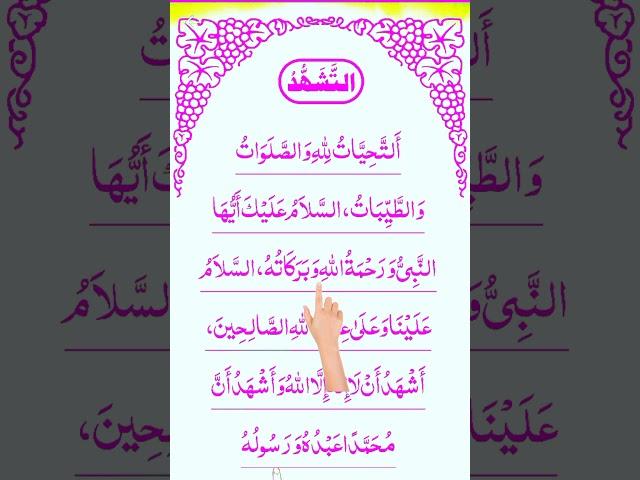 التَّشَهُّدُ
أَلتَّحِيَّاتُ لِلّٰهِ وَالصَّلَوَاتُ
وَالطَّيِّبَاتُ، السَّلَامُ عَلَيْكَ أَيُّهَا
النَّبِيُّ وَرَحْمَةُ اللّٰهِ وَبَرَكَاتُهُ، السَّلَامُ
عَلَيْنَا وَعَلَىٰ اللّٰهِ الصَّالِحِينَ،
أَشْهَدُ أَنْ لَا إِلَّا اللّٰهُ وَأَشْهَدُ أَنَّ
مُحَمَّدًا عَبْدُهُ وَرَسُولُهُ